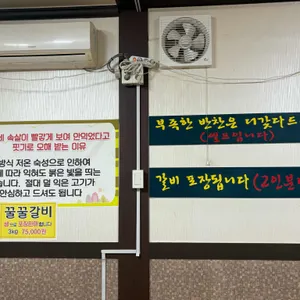 속살이 빨갛게 보여 안익었다고
핏기로 오해 받는 이유
방식 저온 숙성으로 인하여
따라 익혀도 붉은 빛을 띄는
습니다. 절대 덜 익은 고기가
안심하고 드셔도 됩니다
꿀꿀갈비
포장판매
3kg 75,000원
부족한 반찬은 더갖다드
(셀프입니다)
갈비 포장됩니다 (2인분